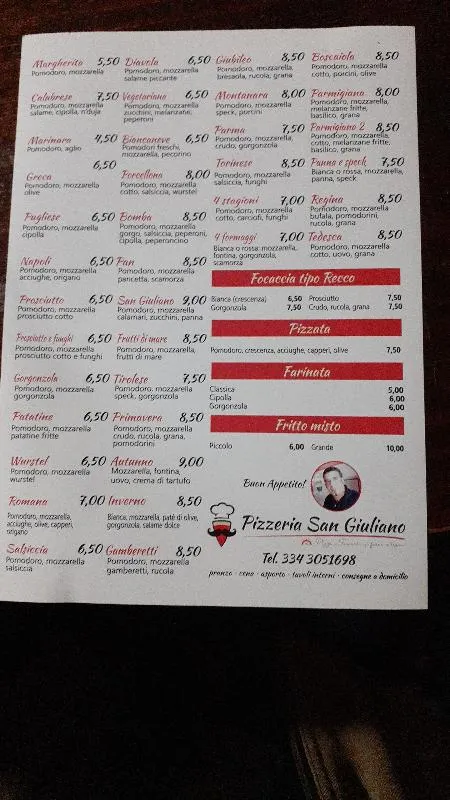 Margherita 5,50
Pomodoro, mozzarella
Calabrese 7,50
Pomodoro, mozzarella
salame, cipolla, n'duja
Marinara 4,50
Pomodoro, aglio
6,50
Greca
Pomodoro, mozzarella
olive
Pugliese 6,50
Pomodoro, mozzarella
cipolla
Napoli 6,50
Pomodoro, mozzarella
acciughe, origano
Prosciutto 6,50
Pomodoro, mozzarella
prosciutto cotto
Prosciutto e funghi 6,50
Pomodoro, mozzarella
prosciutto cotto e funghi
Gorgonzola 6,50
Pomodoro, mozzarella
gorgonzola
Patatine 6,50
Pomodoro, mozzarella
patatine fritte
Wurstel 6,50
Pomodoro, mozzarella
wurstel
Romana 7,00
Pomodoro, mozzarella,
acciughe, olive, capperi,
origano
Salsiccia 6,50
Pomodoro, mozzarella
salsiccia
Diavola 6,50
Pomodoro, mozzarella
salame piccante
Vegetariana 6,50
Pomodoro, mozzarella
zucchini, melanzane,
peperoni
Biancaneve 6,50
Pomodori freschi,
mozzarella, pecorino
Porcellona 8,00
Pomodoro, mozzarella
cotto, salsiccia, wurstel
Bomba 8,50
Pomodoro, mozzarella
gorgo, salsiccia, peperoni,
cipolla, peperoncino
Pan 8,50
Pomodoro, mozzarella
pancetta, scamorza
San Giuliano 9,00
Pomodoro, mozzarella
calamari, zucchini, panna
Frutti di mare 8,50
Pomodoro, mozzarella,
frutti di mare
Tirolese 7,50
Pomodoro, mozzarella
speck, gorgonzola
Primavera 8,50
Pomodoro, mozzarella
crudo, rucola, grana,
pomodorini
Autunno 9,00
Mozzarella, fontina,
uovo, crema di tartufo
Inverno 8,50
Bianca, mozzarella, patè di olive,
gorgonzola, salame dolce
Gamberetti 8,50
Pomodoro, mozzarella
gamberetti, rucola
Giubileo 8,50
Pomodoro, mozzarella,
bresaola, rucola, grana
Montanara 8,00
Pomodoro, mozzarella
speck, porcini
Parma 7,50
Pomodoro, mozzarella,
crudo, gorgonzola
Torinese 8,50
Pomodoro, mozzarella
salsiccia, funghi
4 stagioni 7,00
Pomodoro, mozzarella
cotto, carciofi, funghi
4 formaggi 7,00
Bianca o rossa: mozzarella,
fontina, gorgonzola,
scamorza
Boscaiola 8,50
Pomodoro, mozzarella
cotto, porcini, olive
Parmigiana 8,00
Pomodoro, mozzarella,
melanzane fritte,
basilico, grana
Parmigiano 2 8,50
Pomodoro, mozzarella
cotto, melanzane fritte,
basilico, grana
Panna e speck 7,50
Bianca o rossa, mozzarella,
panna, speck
Regina 8,50
Pomodoro, mozzarella
bufala, pomodorini,
rucola, grana
Tedesca 8,50
Pomodoro, mozzarella
cotto, uovo, grana
Focaccia tipo Recco
Bianca (crescenza) 6,50 Prosciutto 7,50
Gorgonzola 7,50 Crudo, rucola, grana 7,50
Pizzata
Pomodoro, crescenza, acciughe, capperi, olive 7,50
Farinata
Classica 5,00
Cipolla 6,00
Gorgonzola 6,00
Fritto misto
Piccolo 6,00 Grande 10,00
Buon Appetito!
Pizzeria San Giuliano
Tel. 334 3051698
pranzo - cena - asporto - tavoli interni - consegne a domicilio